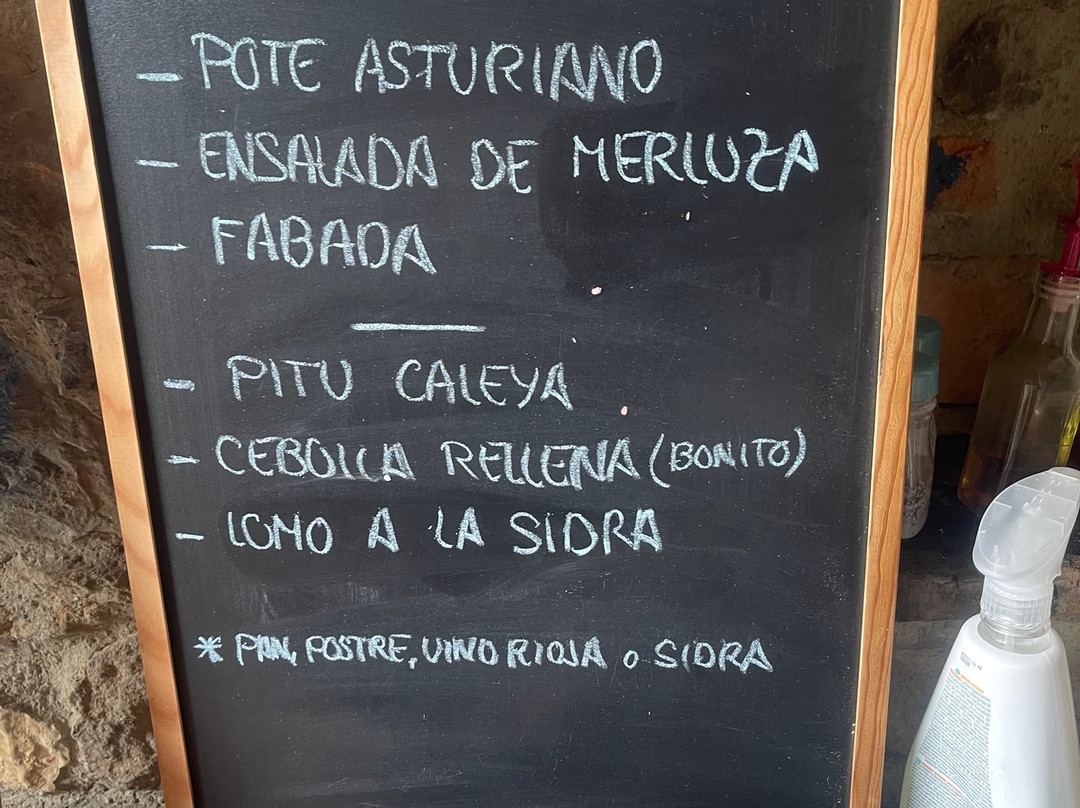 - POTE ASTURIANO
- ENSALADA DE MERLUZA
- FABADA
- PITU CALEYA
- CEBOLLA RELLENA (BONITO)
- LOMO A LA SIDRA
* PAN, POSTRE, VINO RIOJA o SIDRA